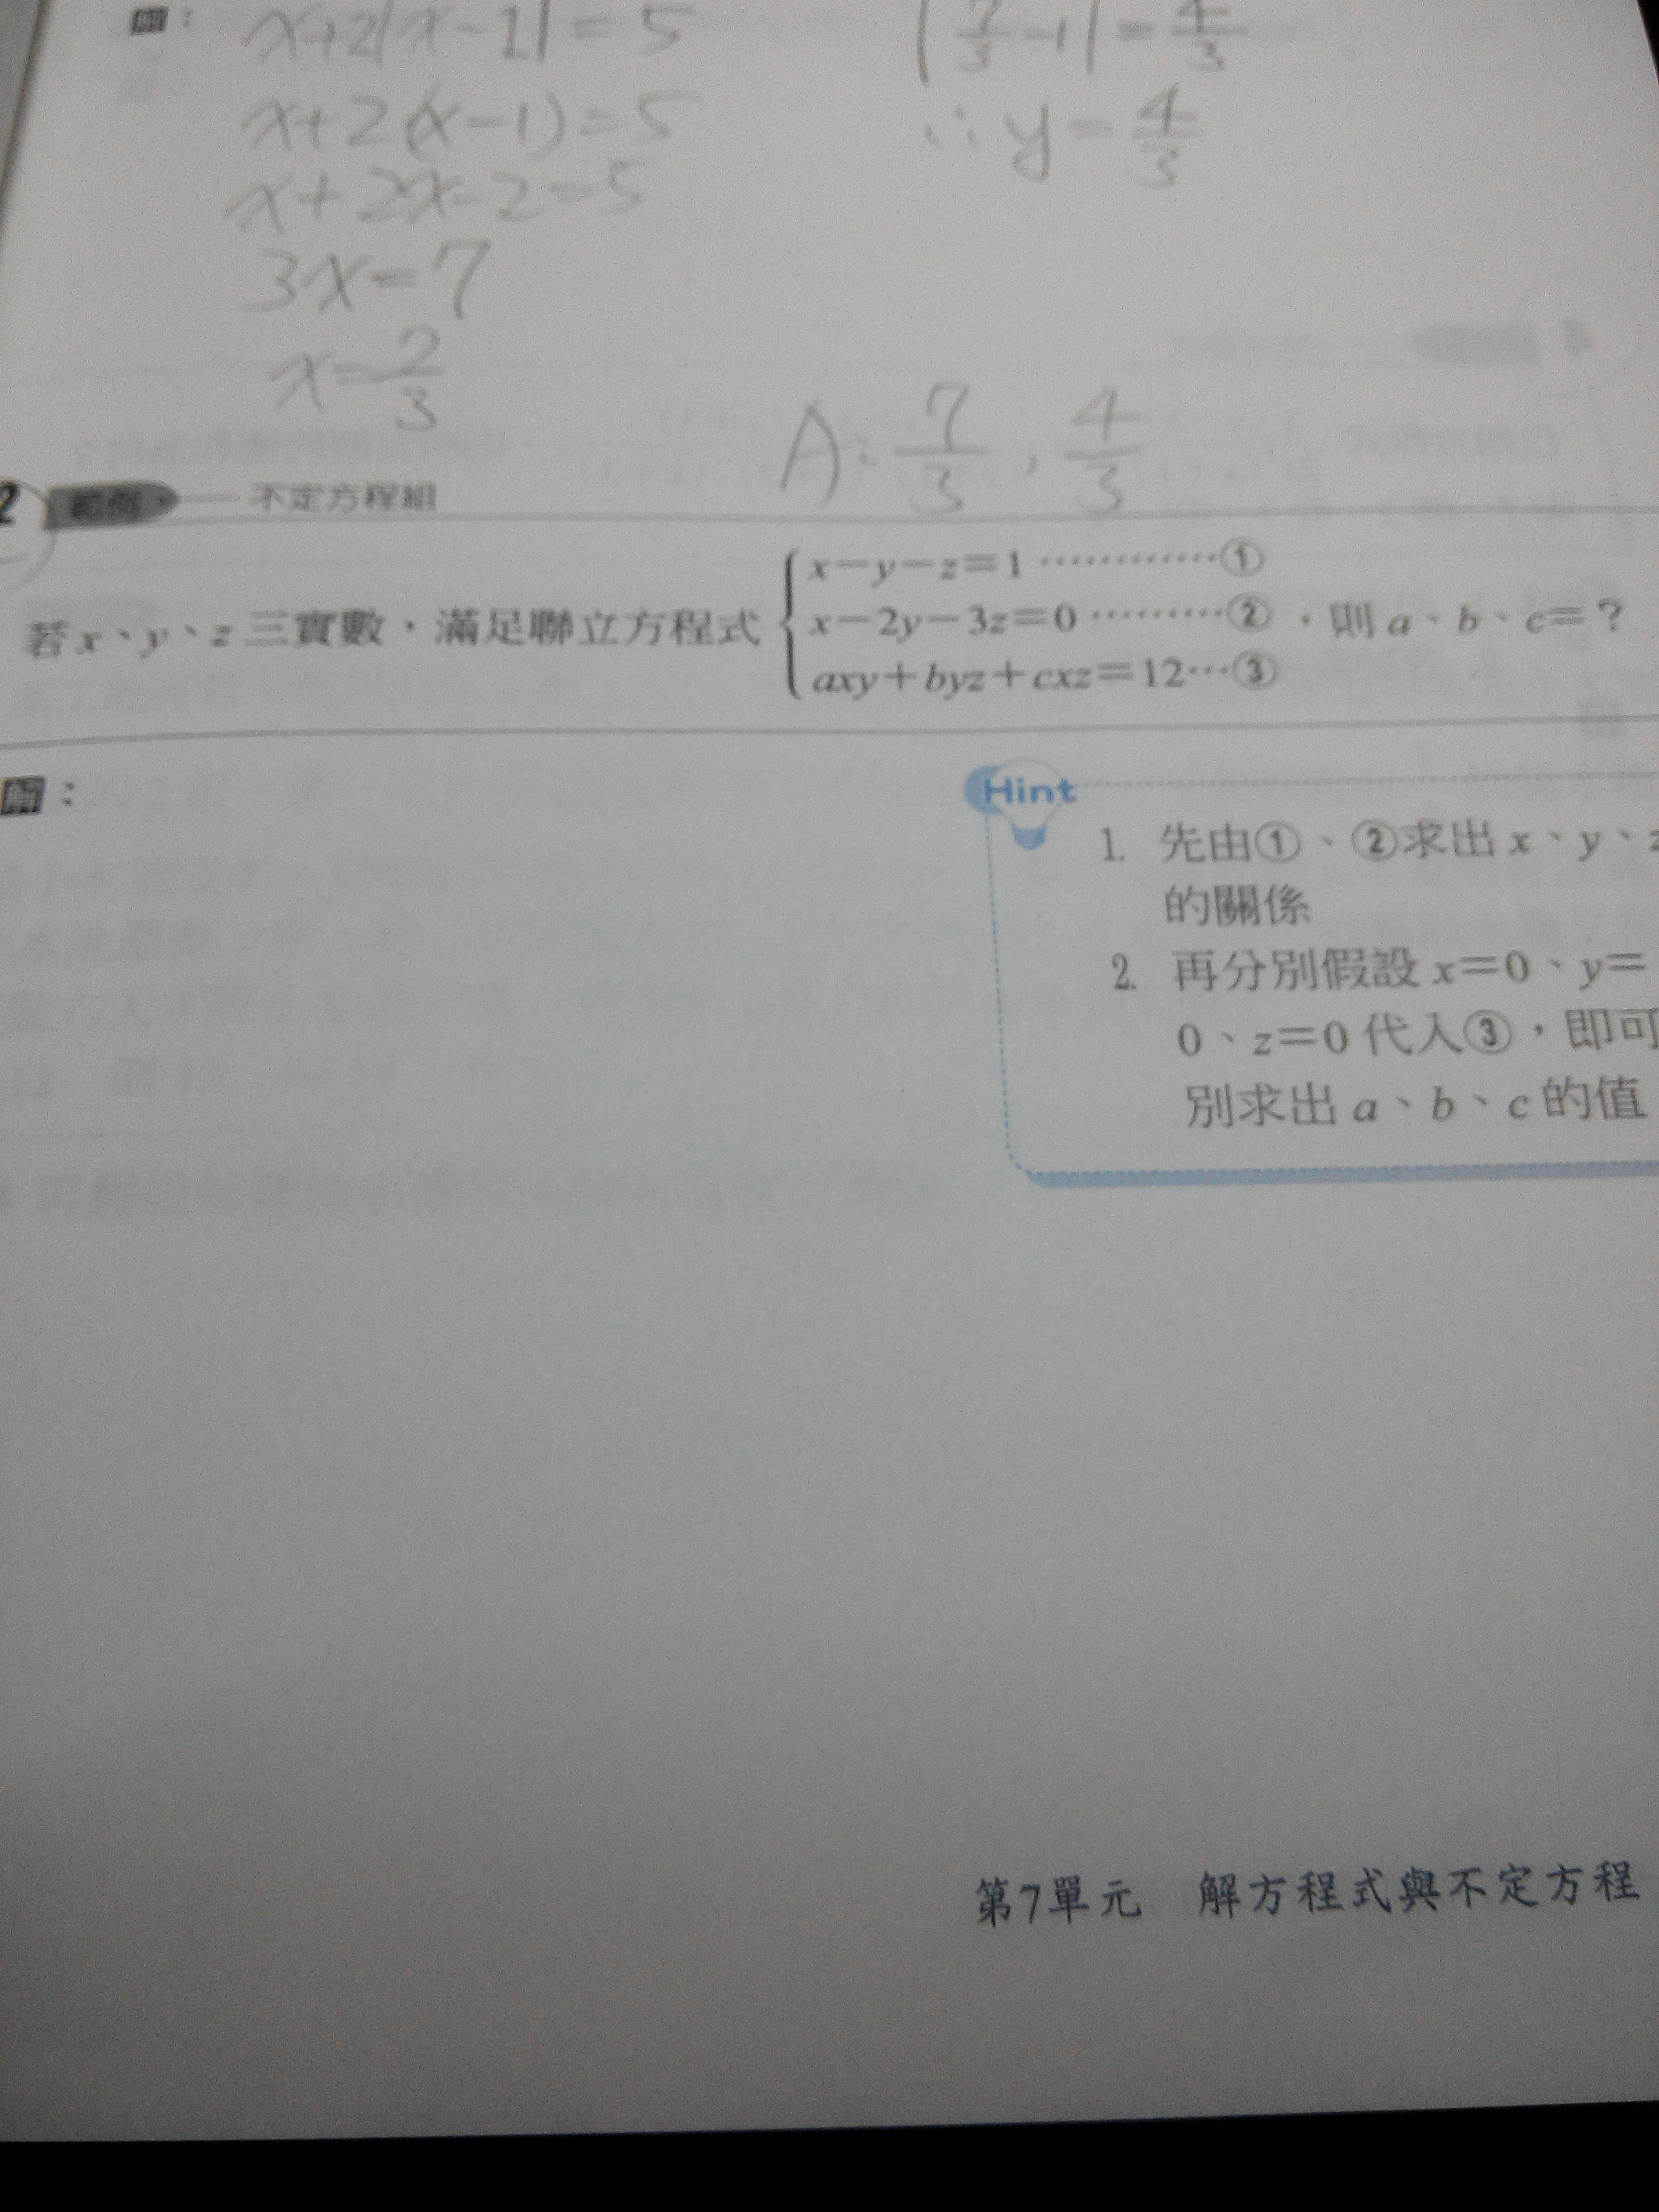 解：
x+2|x-1|=5
x+2(x-1)=5
x+2x-2=5
3x=7
x=7/3
|7/3-1|=4/3
∴y=4/3
A：7/3，4/3
2 範例 不定方程組
若 x、y、z 三實數，滿足聯立方程式
x－y－z＝1 …………①
x－2y－3z＝0 ………②
axy＋byz＋cxz＝12…③
，則 a、b、c＝？
解：
Hint
1. 先由①、②求出 x、y、z
的關係
2. 再分別假設 x＝0、y＝
0、z＝0 代入③，即可
別求出 a、b、c 的值
第7單元　解方程式與不定方程